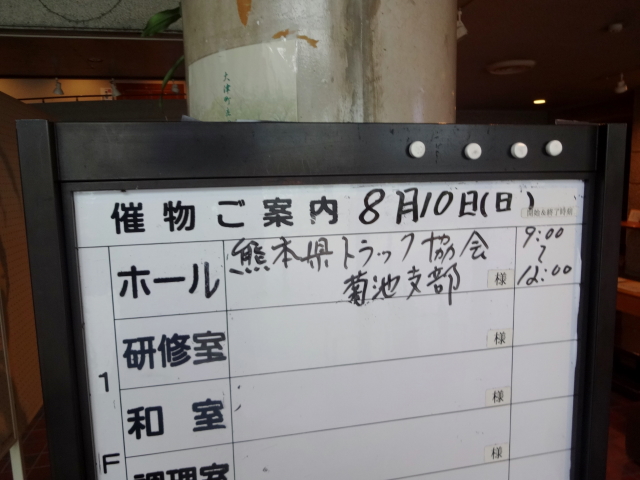 大津町
催物ご案内 8月10日(日) 開始&終了時間
ホール 熊本県トラック協会 9:00
菊池支部 様 〜 12:00
研修室 様
1 和室 様
F 調理室 様